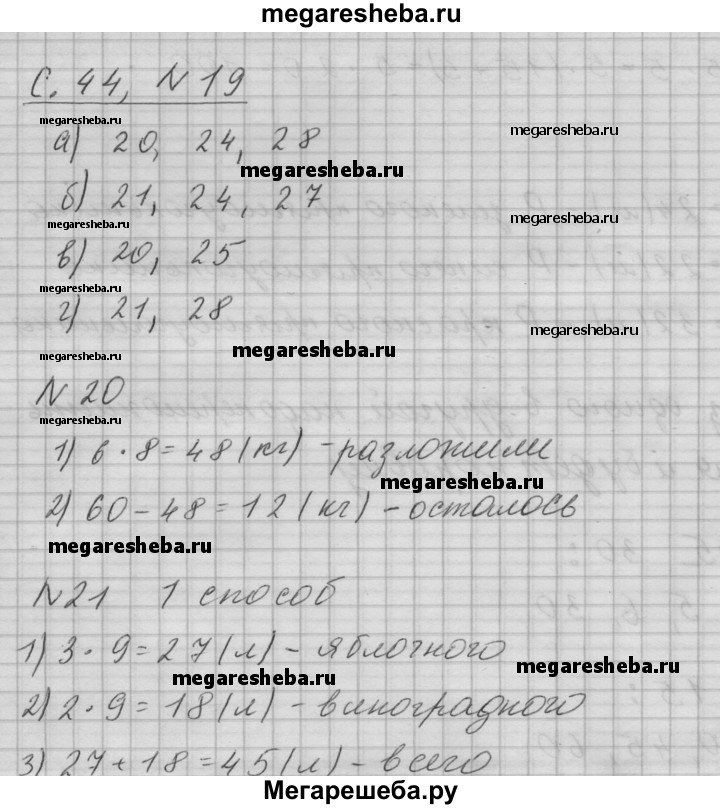 megaresheba.ru
С. 44, №19
megaresheba.ru
а) 20, 24, 28
megaresheba.ru
megaresheba.ru
б) 21, 24, 27
megaresheba.ru
megaresheba.ru
в) 20, 25
г) 21, 28
megaresheba.ru
megaresheba.ru
megaresheba.ru
№20
megaresheba.ru
1) 6 · 8 = 48 (кг) - разложили
megaresheba.ru
2) 60 - 48 = 12 (кг) - осталось
megaresheba.ru
№21 1 способ
1) 3 · 9 = 27 (л) - яблочного
megaresheba.ru
megaresheba.ru
2) 2 · 9 = 18 (л) - виноградного
3) 27 + 18 = 45 (л) - всего
Мегарешеба.ру